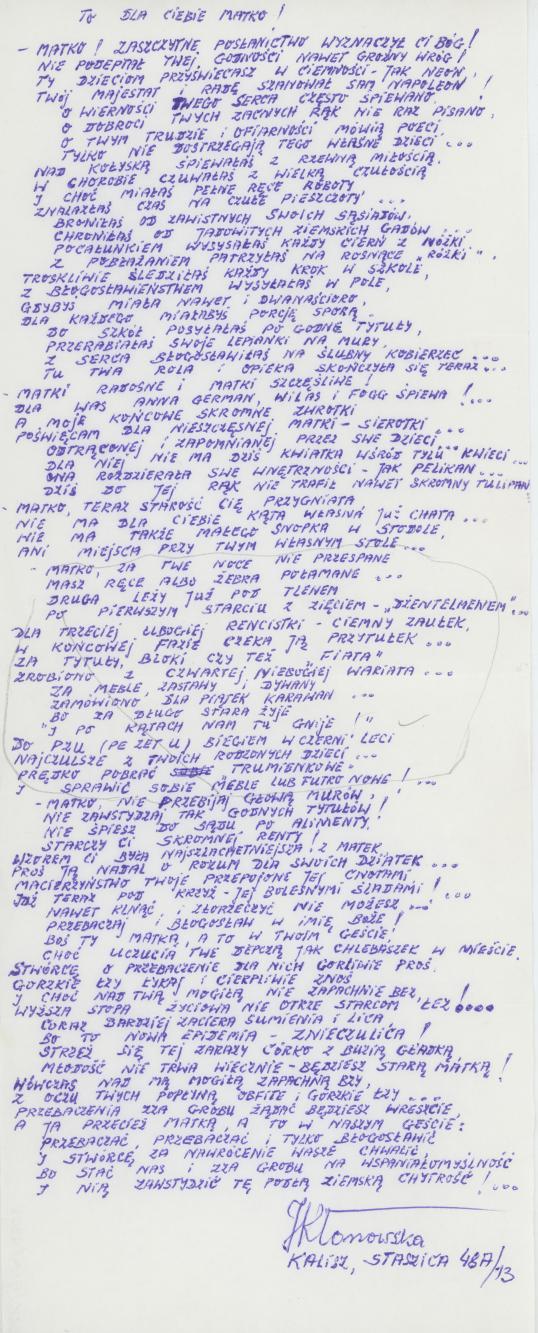 TO DLA CIEBIE MATKO !
- MATKO ! ZASZCZYTNE POSŁANICTWO WYZNACZYŁ CI BÓG!
NIE PODEPTAŁ TWEJ GODNOŚCI NAWET GROŹNY WRÓG!
TY DZIECIOM PRZYŚWIECASZ W CIEMNOŚCI - JAK NEON,
TWÓJ MAJESTAT I RADĘ SZANOWAŁ SAM NAPOLEON !
O WIERNOŚCI TWEGO SERCA CZĘSTO ŚPIEWANO,
O DOBROCI TWYCH ZACNYCH RĄK NIE RAZ PISANO,
O TWYM TRUDZIE I OFIARNOŚCI MÓWIĄ POECI,
TYLKO NIE DOSTRZEGAJĄ TEGO WŁASNE DZIECI ...
NAD KOŁYSKĄ ŚPIEWAŁAŚ Z RZEWNĄ MIŁOŚCIĄ,
W CHOROBIE CZUWAŁAŚ Z WIELKĄ CZUŁOŚCIĄ
I CHOĆ MIAŁAŚ PEŁNE RĘCE ROBOTY
ZNALAZŁAŚ CZAS NA CZUŁE PIESZCZOTY ...
BRONIŁAŚ OD ZAWISTNYCH SWOICH SĄSIADÓW,
CHRONIŁAŚ OD JADOWITYCH ZIEMSKICH GADÓW ...
POCAŁUNKIEM WYSYSAŁAŚ KAŻDY CIERŃ Z NÓŻKI
Z POBŁAŻANIEM PATRZYŁAŚ NA ROSNĄCE „RÓŻKI",
TROSKLIWIE ŚLEDZIŁAŚ KAŻDY KROK W SZKOLE,
Z BŁOGOSŁAWIEŃSTWEM WYSYŁAŁAŚ W POLE,
GDYBYŚ MIAŁA NAWET I DWANAŚCIORO,
DLA KAŻDEGO MIAŁABYŚ PORCJĘ SPORĄ.
DO SZKÓŁ POSYŁAŁAŚ PO GODNE TYTUŁY,
PRZERABIAŁAŚ SWOJE LEPIANKI NA MURY,
Z SERCA BŁOGOSŁAWIŁAŚ NA ŚLUBNY KOBIERZEC ...
TU TWA ROLA I OPIEKA SKOŃCZYŁA SIĘ TERAZ...
- MATKI RADOSNE I MATKI SZCZĘŚLIWE !
DLA WAS ANNA GERMAN, WILAS I FOGG ŚPIEWA !...
A MOJE KOŃCOWE SKROMNE ZWROTKI
POŚWIĘCAM DLA NIESZCZĘSNEJ MATKI - SIEROTKI
ODTRĄCONEJ I ZAPOMNIANEJ PRZEZ SWE DZIECI...
DLA NIEJ NIE MA DZIŚ KWIATKA WŚRÓD TYLU KWIECI...
ONA ROZDZIERAŁA SWE WNĘTRZNOŚCI - JAK PELIKAN...
DZIŚ DO JEJ RĄK NIE TRAFIŁ NAWET SKROMNY TULIPAN
- MATKO, TERAZ STAROŚĆ CIĘ PRZYGNIATA
NIE MA DLA CIEBIE KĄTA WŁASNA JUŻ CHATA ...
NIE MA TAKŻE MAŁEGO SNOPKA W STODOLE,
ANI MIEJSCA PRZY TWYM WŁASNYM STOLE ...
- MATKO, ZA TWE NOCE NIE PRZESPANE
MASZ RĘCE ALBO ŻEBRA POŁAMANE ...
DRUGA LEŻY JUŻ POD TLENEM
PO PIERWSZYM STARCIU Z ZIĘCIEM - „DŻENTELMENEM"...
DLA TRZECIEJ UBOGIEJ RENCISTKI - CIEMNY ZAUŁEK,
W KOŃCOWEJ FAZIE CZEKA JĄ PRZYTUŁEK ...
ZA TYTUŁY, BLOKI CZY TEŻ „FIATA"
ZROBIONO Z CZWARTEJ, NIEBOGIEJ WARIATA ...
ZA MEBLE, ZASTAWY I DYWANY
ZAMÓWIONO DLA PIĄTEJ KARAWAN ...
BO ZA DŁUGO STARA ŻYJE
"I PO KĄTACH NAM TU GNIJE !"
DO PZU (PE ZET U) BIEGIEM W CZERNI LECI
NAJCZULSZE Z TWOICH RODZONYCH DZIECI ...
PRĘDKO POBRAĆ "TRUMIENKOWE"
I SPRAWIĆ SOBIE MEBLE LUB FUTRO NOWE !...
- MATKO, NIE PRZEBIJAJ GŁOWĄ MURÓW,
NIE ZAWSTYDZAJ TAK GODNYCH TYTUŁÓW !
NIE ŚPIESZ DO SĄDU PO ALIMENTY,
STARCZY CI SKROMNEJ RENTY !
WZOREM CI BYŁA NAJSZLACHETNIEJSZA Z MATEK
PROŚ JĄ NADAL O ROZUM DLA SWOICH DZIATEK ...
MACIERZYŃSTWO TWOJE PRZEPOJONE JEJ CNOTAMI,
IDŹ TERAZ POD KRZYŻ - JEJ BOLESNYMI ŚLADAMI !...
NAWET KLNĄĆ I ZŁORZECZYĆ NIE MOŻESZ ...
PRZEBACZAJ I BŁOGOSŁAW W IMIĘ BOŻE !
BOŚ TY MATKĄ, A TO W TWOIM GEŚCIE!
CHOĆ UCZUCIA TWE DEPCZĄ JAK CHLEBASZEK W MIEŚCIE.
STWÓRCĘ O PRZEBACZENIE DLA NICH GORLIWIE PROŚ,
GORZKIE ŁZY ŁYKAJ I CIERPLIWIE ZNOŚ
I CHOĆ NAD TWĄ MOGIŁĄ NIE ZAPACHNIE BEZ,
WYŻSZA STOPA ŻYCIOWA NIE OTRZE STARCOM ŁEZ !....
CORAZ BARDZIEJ ZACIERA SUMIENIA I LICA
BO TO NOWA EPIDEMIA - ZNIECZULICA !
STRZEŻ SIĘ TEJ ZARAZY CÓRKO Z BUZIĄ GŁADKĄ,
MŁODOŚĆ NIE TRWA WIECZNIE - BĘDZIESZ STARĄ MATKĄ !
WÓWCZAS NAD MĄ MOGIŁĄ ZAPACHNĄ BZY,
Z OCZU TWYCH POPŁYNĄ OBFITE I GORZKIE ŁZY ...
PRZEBACZENIA ZZA GROBU ŻĄDAĆ BĘDZIESZ WRESZCIE,
A JA PRZECIEŻ MATKĄ, A TO W NASZYM GEŚCIE:
PRZEBACZAĆ, PRZEBACZAĆ I TYLKO BŁOGOSŁAWIĆ
I STWÓRCĘ ZA NAWRÓCENIE WASZE CHWALIĆ
BO STAĆ NAS I ZZA GROBU NA WSPANIAŁOMYŚLNOŚĆ
I NIĄ ZAWSTYDZIĆ TĘ PODŁĄ ZIEMSKĄ CHYTROŚĆ !...
JKłonowska
KALISZ, STASZICA 48A/13